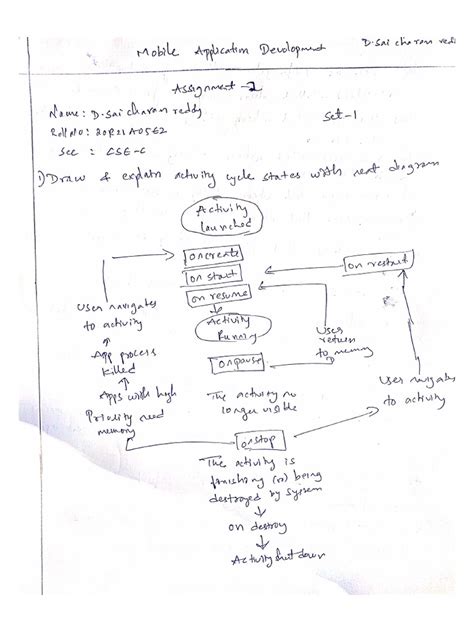 Mobile Application Development
D. Sai charan
Assignment -2
Name: D. Sai charan reddy
Set-1
Roll No: 20R21A0562
Sec : CSE-C
1) Draw & explain activity cycle states with neat diagram
Activity
launched
oncreate
on start
on resume
on restart
User navigates
to activity
Activity
Running
User
return
to memory
App process
killed
onpause
Apps with high
Priority need
memory
The activity no
longer visible
User navigates
to activity
onstop
The activity is
finishing (or) being
destroyed by system
on destroy
Activity shut down